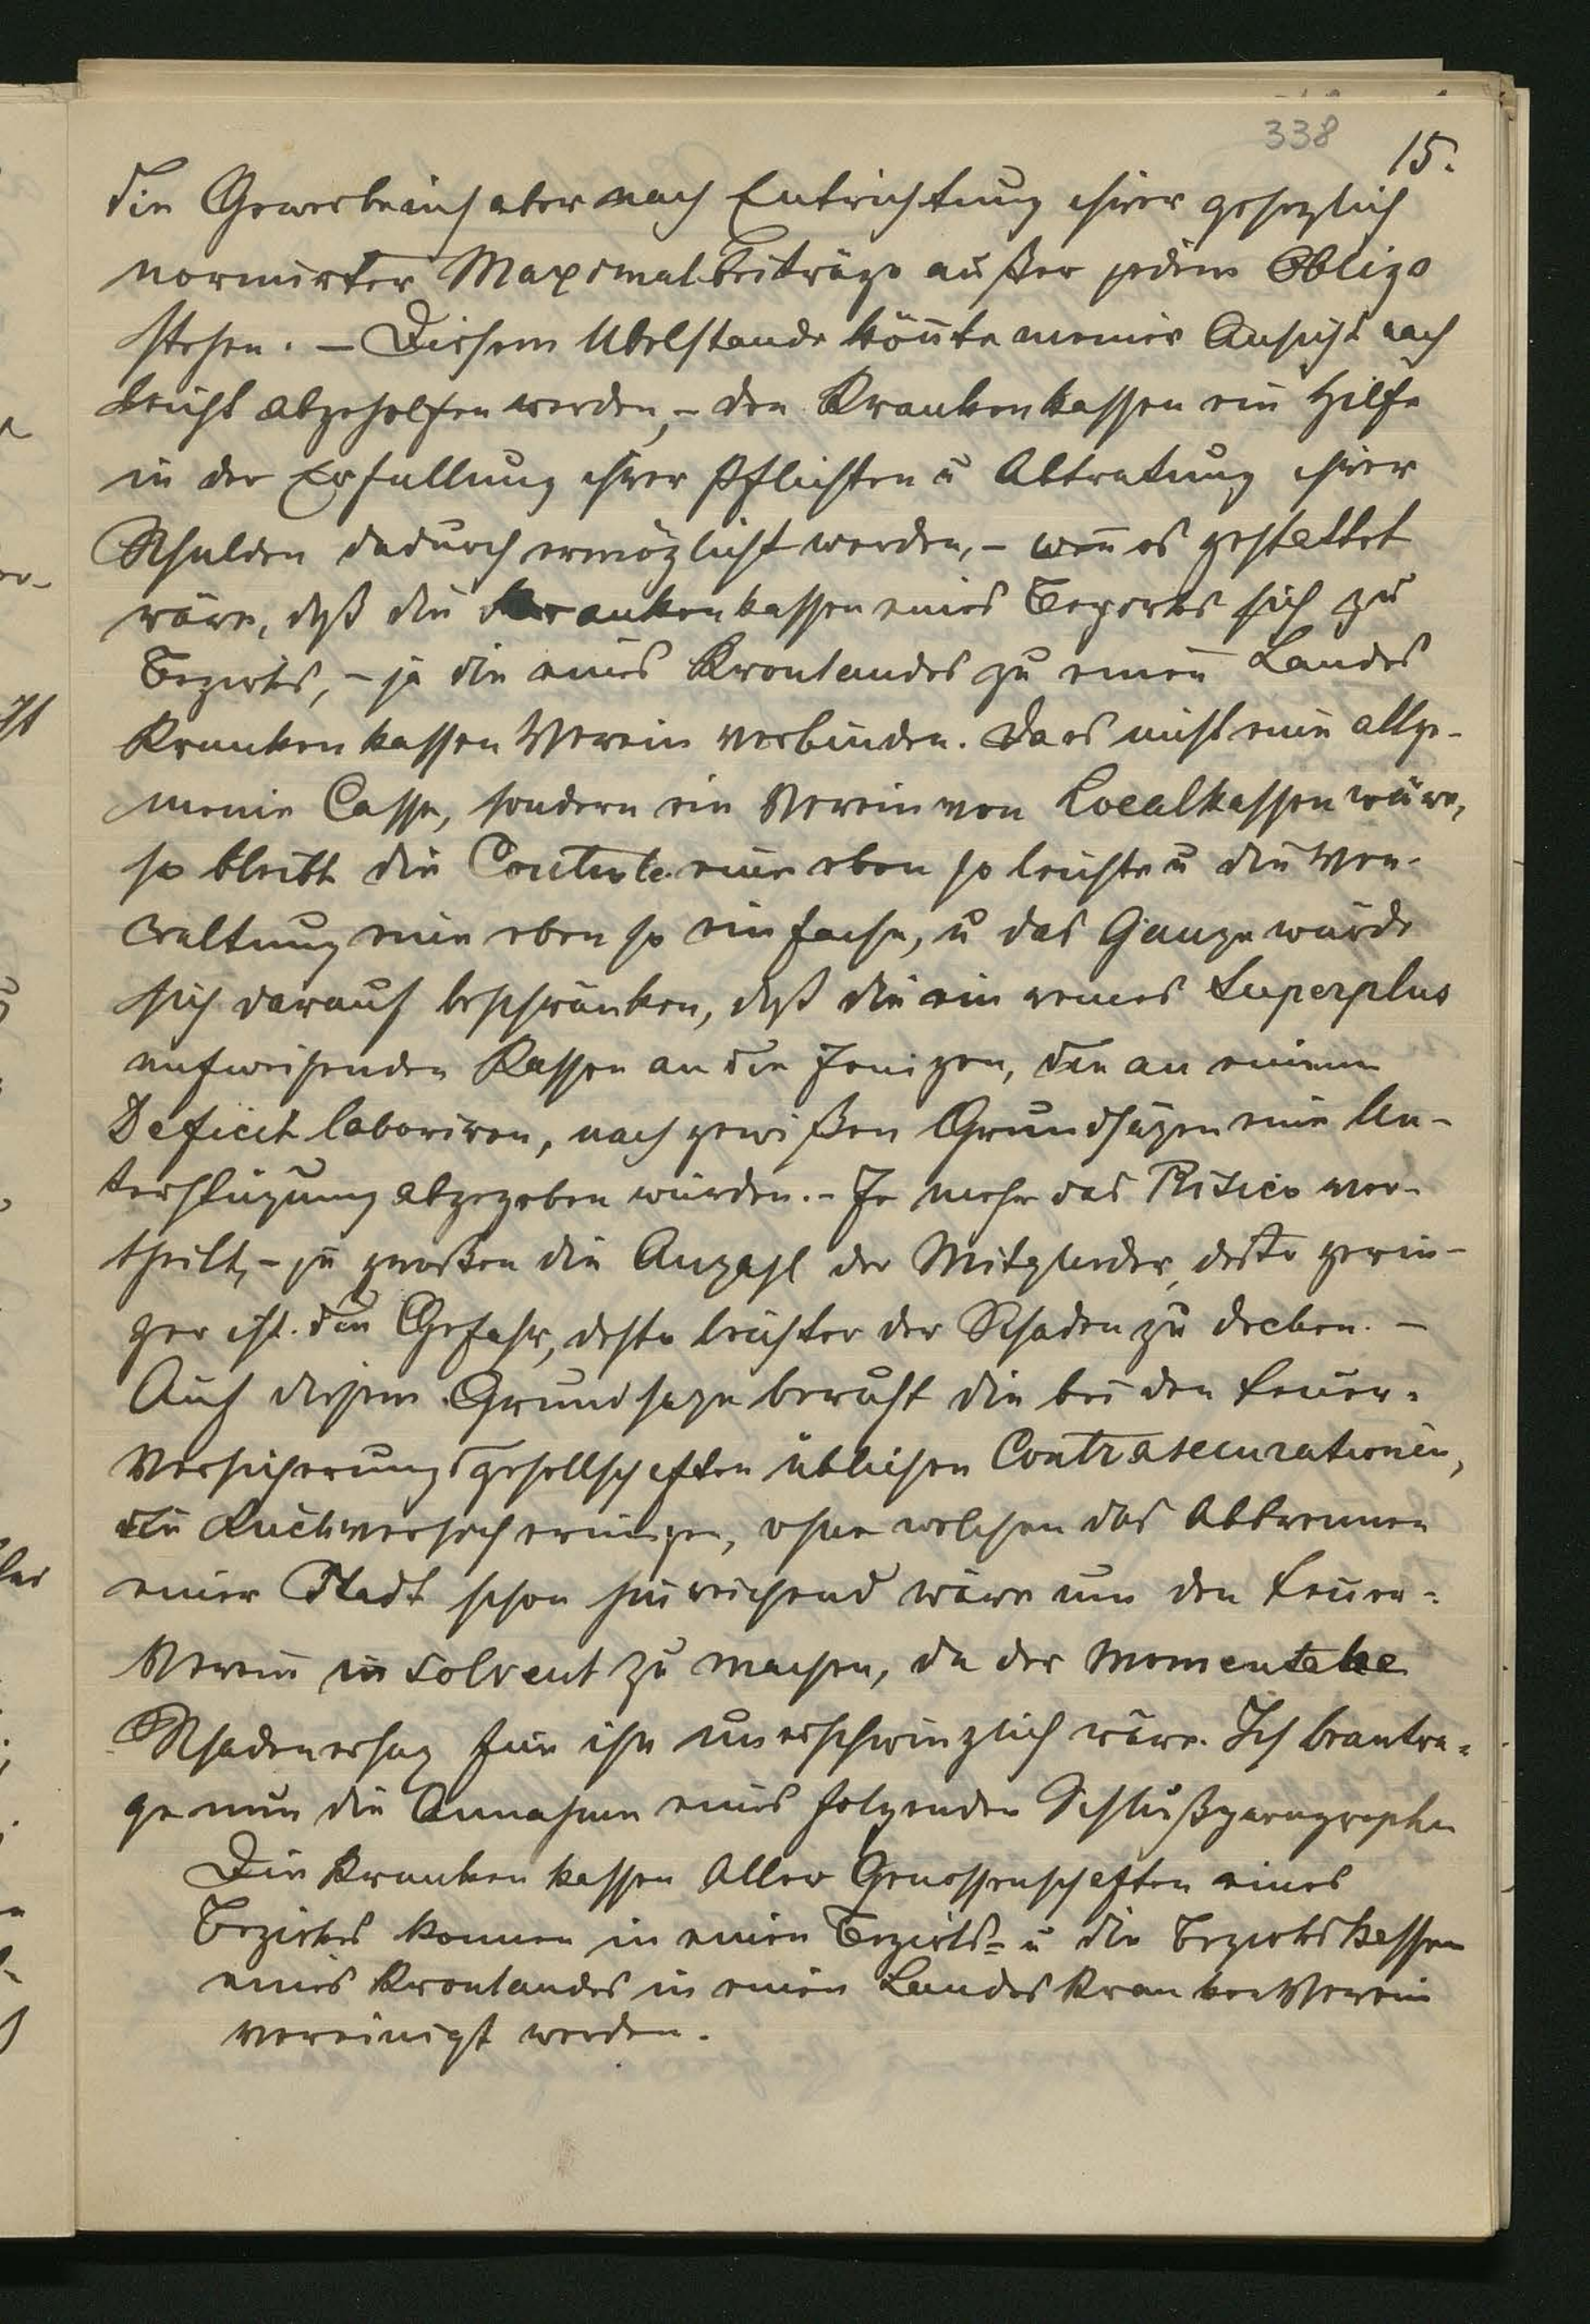 338
15.
die Gewerbeinh aber nach Entrichtung ihrer gesezlich
normirter Maximalbeiträge außer jedem Obligo
stehen. – Diesem Ubelstande könnte meiner Ansicht nach
leicht abgeholfen werden, – den Krankenkassen ein Hilfe
in der Erfullung ihrer Pflichten u Abtratung ihrer
Schulden dadurch ermöglicht werden, – wen̄ es gestattet
wäre, daß die Krankenkassen eines Bezirks sich zu
Bezirks, – ja die eines Kronlandes zu einen Landes
Krankenkassen Verein verbinden. Da es nicht eine allge-
meine Casse, sondern ein Verein von Localkassen wäre,
so bleibt die Controle eine eben so leichte u die Ver-
waltung eine eben so einfache, u das Ganze würde
sich darauf beschränken, daß die ein reines Superplus
aufweisenden Kassen an die Jenigen, die an einem
Deficit laboriren, nach gewißen Grundsäzen eine Un-
terstüzung abgegeben würden. – Je mehr das Risico ver-
theilt, – je großer die Anzahl der Mitglieder, desto gerin-
ger ist die Gefahr, desto leichter der Schaden zu decken. –
Auf diesem Grundsaze beruht die bei den Feuer-
Versicherungsgesellschaften üblichen Contrasecurationen,
die Rückversicherungen, ohne welchen das Abbrennen
einer Stadt schon hinreichend wäre um den Feuer-
Verein in solvent zu machen, da der momentane
Schadenersaz für ihn unerschwinglich wäre. Ich beantra-
ge nun die Annahme eines folgenden Schlußparagraphen
Die Kranken kassen Aller Genossenschaften eines
Bezirkes konnen in einen Bezirks- u die Bezirkskassen
eines Kronlandes in einen Landes Kranken Verein
vereinigt werden.